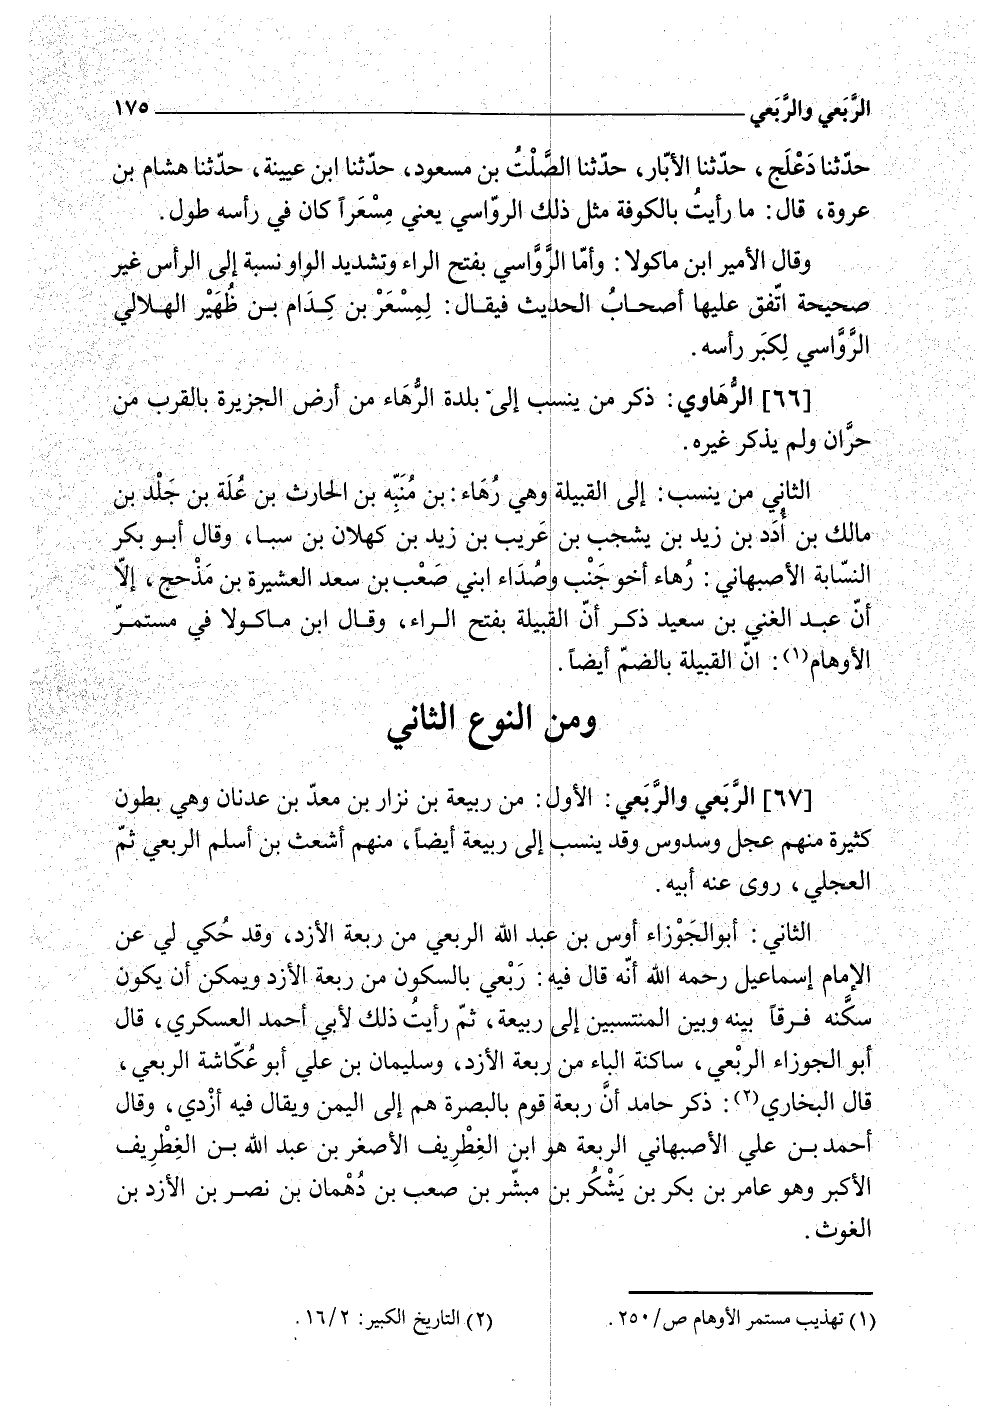 الرَّبَعي والرَّبَعي ١٧٥
حدّثنا دَعْلَج، حدّثنا الأبّار، حدّثنا الصَّلْتُ بن مسعود، حدّثنا ابن عيينة، حدّثنا هشام بن
عروة، قال: ما رأيتُ بالكوفة مثل ذلك الروّاسي يعني مِسْعَراً كان في رأسه طول.
وقال الأمير ابن ماكولا: وأمّا الرَّوَّاسي بفتح الراء وتشديد الواو نسبة إلى الرأس غير
صحيحة اتّفق عليها أصحابُ الحديث فيقال: لِمِسْعَرْ بن كِدَام بن ظُهَيْر الهلالي
الرَّوَّاسي لِكبَر رأسه.
[٦٦] الرُّهَاوي: ذكر من ينسب إلى بلدة الرُّهَاء من أرض الجزيرة بالقرب من
حرَّان ولم يذكر غيره.
الثاني من ينسب: إلى القبيلة وهي رُهَاء: بن مُنَبِّه بن الحارث بن عُلَة بن جَلْد بن
مالك بن أُدَد بن زيد بن يشجب بن عَريب بن زيد بن كهلان بن سبا، وقال أبو بكر
النسّابة الأصبهاني: رُهاء أخو جَنْب وصُدَاء ابني صَعْب بن سعد العشيرة بن مَذْحج، إلاّ
أنّ عبد الغني بن سعيد ذكر أنّ القبيلة بفتح الراء، وقال ابن ماكولا في مستمرّ
الأوهام(١): انّ القبيلة بالضمّ أيضاً.
ومن النوع الثاني
[٦٧] الرَّبَعي والرَّبَعي: الأول: من ربيعة بن نزار بن معدّ بن عدنان وهي بطون
كثيرة منهم عجل وسدوس وقد ينسب إلى ربيعة أيضاً، منهم أشعث بن أسلم الربعي ثمّ
العجلي، روى عنه أبيه.
الثاني: أبوالجَوْزاء أوس بن عبد الله الربعي من ربعة الأزد، وقد حُكي لي عن
الإمام إسماعيل رحمه الله أنّه قال فيه: رَبْعي بالسكون من ربعة الأزد ويمكن أن يكون
سكَّنه فرقاً بينه وبين المنتسبين إلى ربيعة، ثمّ رأيتُ ذلك لأبي أحمد العسكري، قال
أبو الجوزاء الربْعي، ساكنة الباء من ربعة الأزد، وسليمان بن علي أبو عُكّاشة الربعي،
قال البخاري(٢): ذكر حامد أنَّ ربعة قوم بالبصرة هم إلى اليمن ويقال فيه أزْدي، وقال
أحمد بن علي الأصبهاني الربعة هو ابن الغِطْرِيف الأصغر بن عبد الله بن الغِطْرِيف
الأكبر وهو عامر بن بكر بن يَشْكُر بن مبشّر بن صعب بن دُهْمان بن نصر بن الأزد بن
الغوث.
(١) تهذيب مستمر الأوهام ص/٢٥٠. (٢) التاريخ الكبير: ١٦/٢.